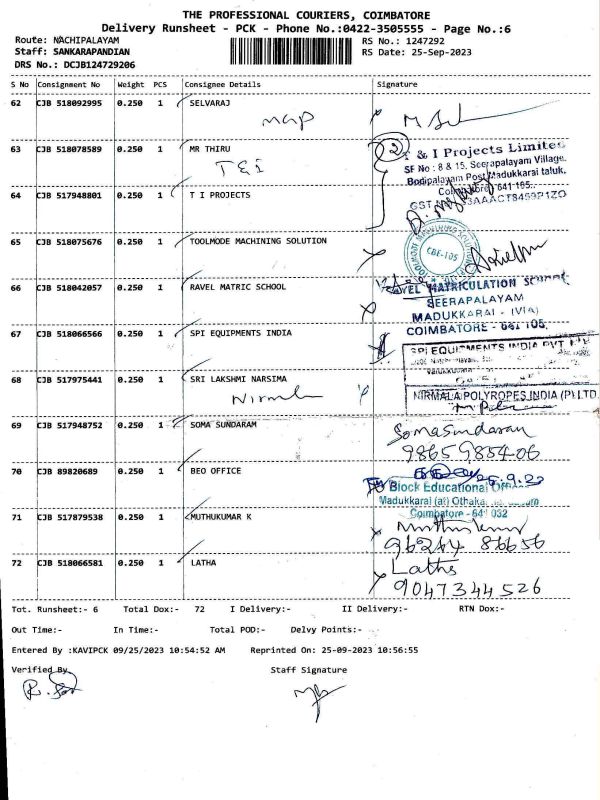 THE PROFESSIONAL COURIERS, COIMBATORE
Delivery Runsheet - PCK - Phone No.:0422-3505555 - Page No.:6
Route: NACHIPALAYAM
RS No.: 1247292
Staff: SANKARAPANDIAN
RS Date: 25-Sep-2023
DRS No.: DCJB124729206
S No Consignment No Weight PCS Consignee Details Signature
62 CJB 518092995 0.250 1 SELVARAJ
map
63 CJB 518078589 0.250 1 MR THIRU
T & I
2
T & I Projects Limited
SF No : 8 & 15, Seerapalayam Village,
Bodipalayam Post, Madukkarai taluk,
64 CJB 517948801 0.250 1 T I PROJECTS
65 CJB 518075676 0.250 1 TOOLMODE MACHINING SOLUTION
CBE-105
66 CJB 518042057 0.250 1 RAVEL MATRIC SCHOOL
RAVEL MATRICULATION SCHOOL
SEERAPALAYAM
MADUKKARAI - (VIA)
COIMBATORE - 641 105
67 CJB 518066566 0.250 1 SPI EQUIPMENTS INDIA
SPI EQUIPMENTS INDIA PVT LTD
68 CJB 517975441 0.250 1 SRI LAKSHMI NARSIMA
NIRMALA POLYROPES INDIA (P) LTD
69 CJB 517948752 0.250 1 SOMA SUNDARAM
Somasundaram
70 CJB 89820689 0.250 1 BEO OFFICE
Block Educational Officer
Madukkarai (at)
Coimbatore - 641 032
71 CJB 517879538 0.250 1 MUTHUKUMAR K
96244 86656
72 CJB 518066581 0.250 1 LATHA
Latha
9047344526
Tot. Runsheet:- 6 Total Dox:- 72 I Delivery:- II Delivery:- RTN Dox:-
Out Time:- In Time:- Total POD:- Delvy Points:-
Entered By :KAVIPCK 09/25/2023 10:54:52 AM Reprinted On: 25-09-2023 10:56:55
Verified By
Staff Signature